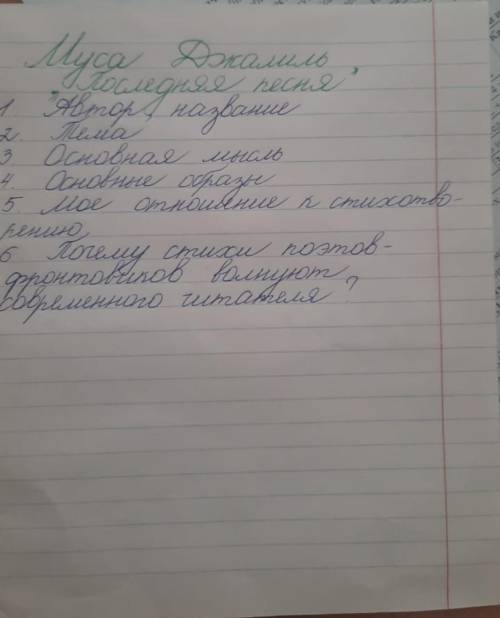 Муса Джалиль
"Последняя песня"
1. Автор, название
2. Тема
3 Основная мысль
4. Основные образы
5. Мое отношение к стихотво-
рению
6 Почему стихи поэтов-
фронтовиков волнуют
современного читателя?